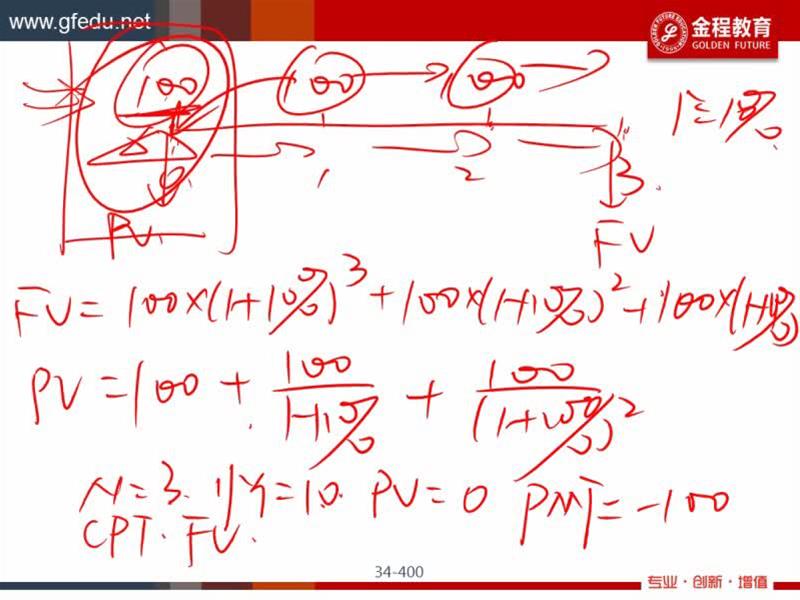 www.gfedu.net
金程教育
GOLDEN FUTURE
100 100 100
I=10%
0 1 2 3
PV FV
FV=100×(1+10%)³+100×(1+10%)²+100×(1+10%)
PV=100+100/(1+10%)+100/(1+10%)²
N=3. I/Y=10. PV=0 PMT=-100
CPT. FV.
34-400
专业·创新·增值